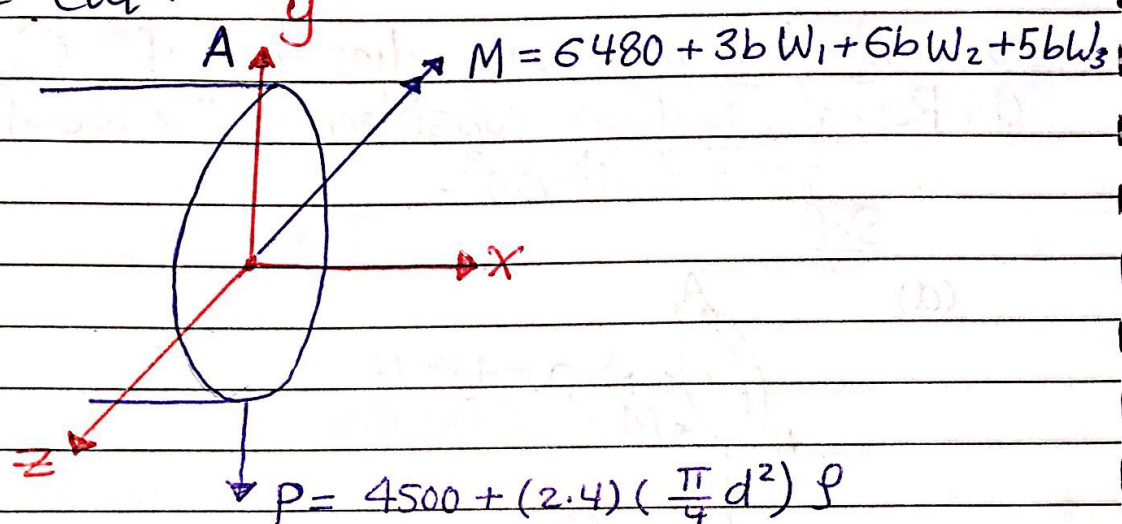 y
A
M = 6480 + 3b W₁ + 6b W₂ + 5b W₃
x
z
P = 4500 + (2.4) ( π/4 d² ) ρ